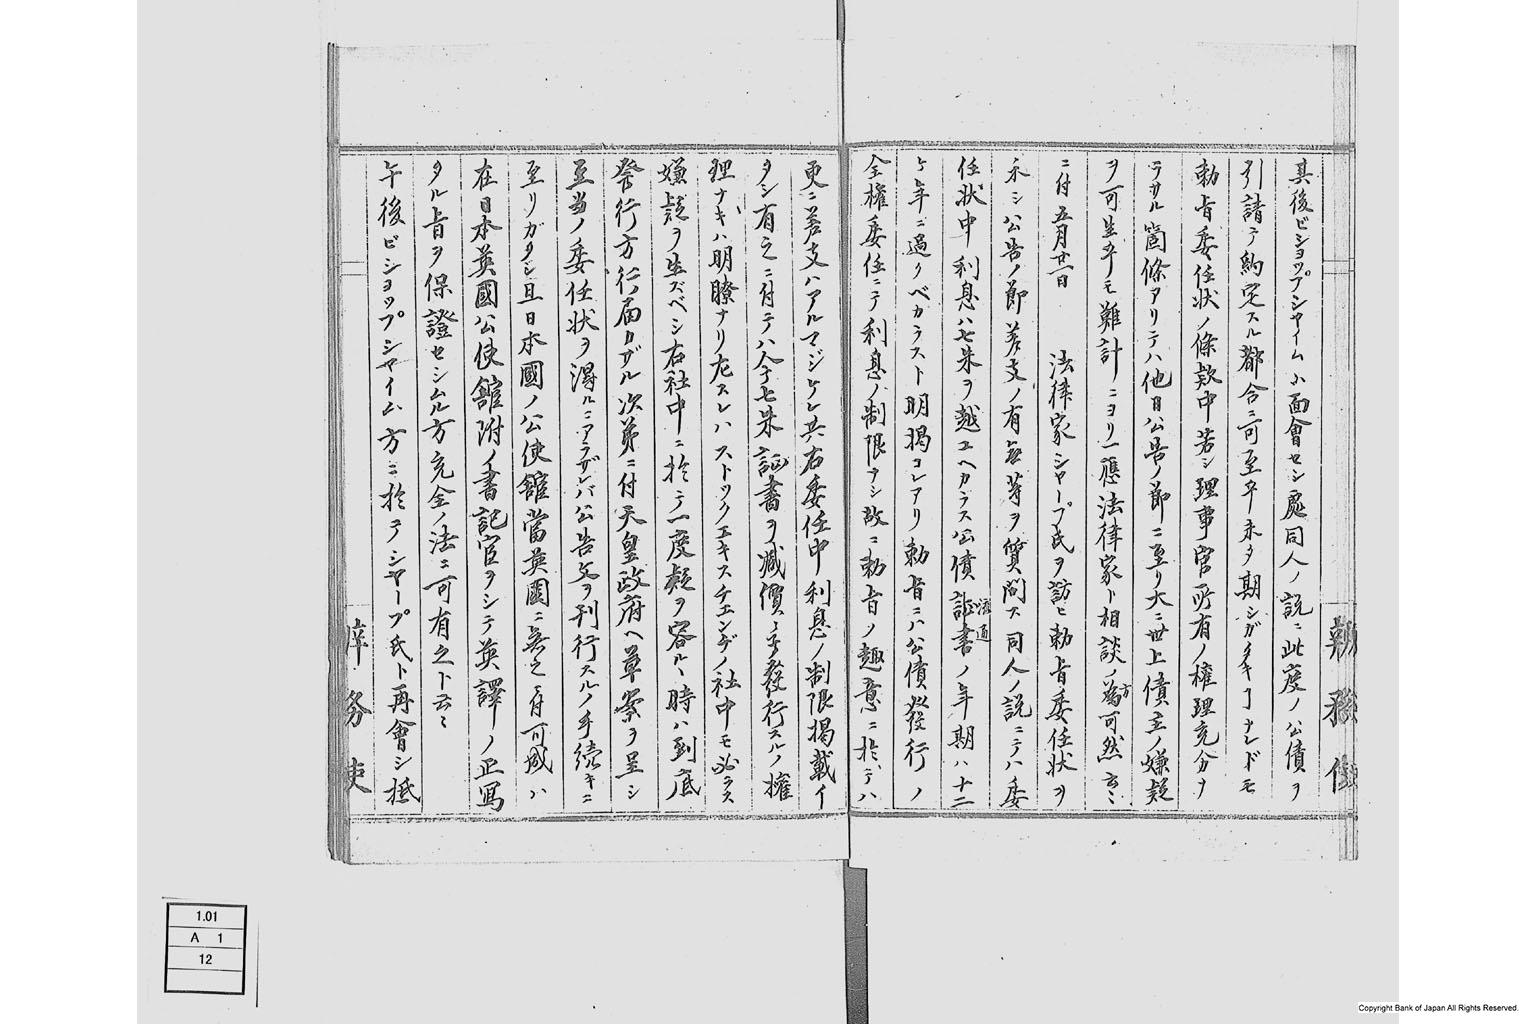 其後ビショップシャイム小面會セシ處同人ノ説ニ此度ノ公債ヲ
引請テ約定スル都合ニ可至乎未タ期シガタキ ナレドモ
勅旨委任状ノ條款中若シ理事官所有ノ權理充分ヲ
ラサル箇條アリテハ他日公告ノ節ニ至リ大ニ世上債主ノ嫌疑
ヲ可生乎モ難計 ニヨリ一應法律家ト相談ノ為方可然云ミ
ニ付五月廿一日 法律家シャープ氏ヲ訪ヒ勅旨委任状ヲ
示シ公告ノ節差支ノ有無等ヲ質問ス同人ノ説ニテハ委
任状中利息ハ七朱ヲ越ユヘカラス公債證書ノ年期ハ十二
ケ年ニ過クベカラスト明掲コレアリ勅旨ニハ公債發行ノ
全權委任ニテ利息ノ制限ナシ故ニ勅旨ノ趣意ニ於テハ
更ニ差支ハアルマジケレ共右委任中利息ノ制限掲載イ
タシ有之ニ付テハ今七朱証書ヲ減價 發行スルノ權
理ナキハ明瞭ナリ左スレハストックエキスチエンヂノ社中モ必ラス
嫌疑ヲ生ズベシ右社中ニ於テ一度疑ヲ容ルヽ時ハ到底
發行方行届カザル次第ニ付天皇政府ヘ草案ヲ呈シ
至当ノ委任状ヲ得ルニアラザレバ公告文ヲ刊行スルノ手續キニ
至リガタシ且日本國ノ公使館當英國ニ無之ニ付可成ハ
在日本英國公使館附ノ書記官ヲシテ英譯ノ正寫
タル旨ヲ保證セシムル方充全ノ法ニ可有之ト云ミ
午後ビショップシャイム方ニ於テシャープ氏ト再會シ抵
1.01
A 1
12
Copyright Bank of Japan All Rights Reserved.